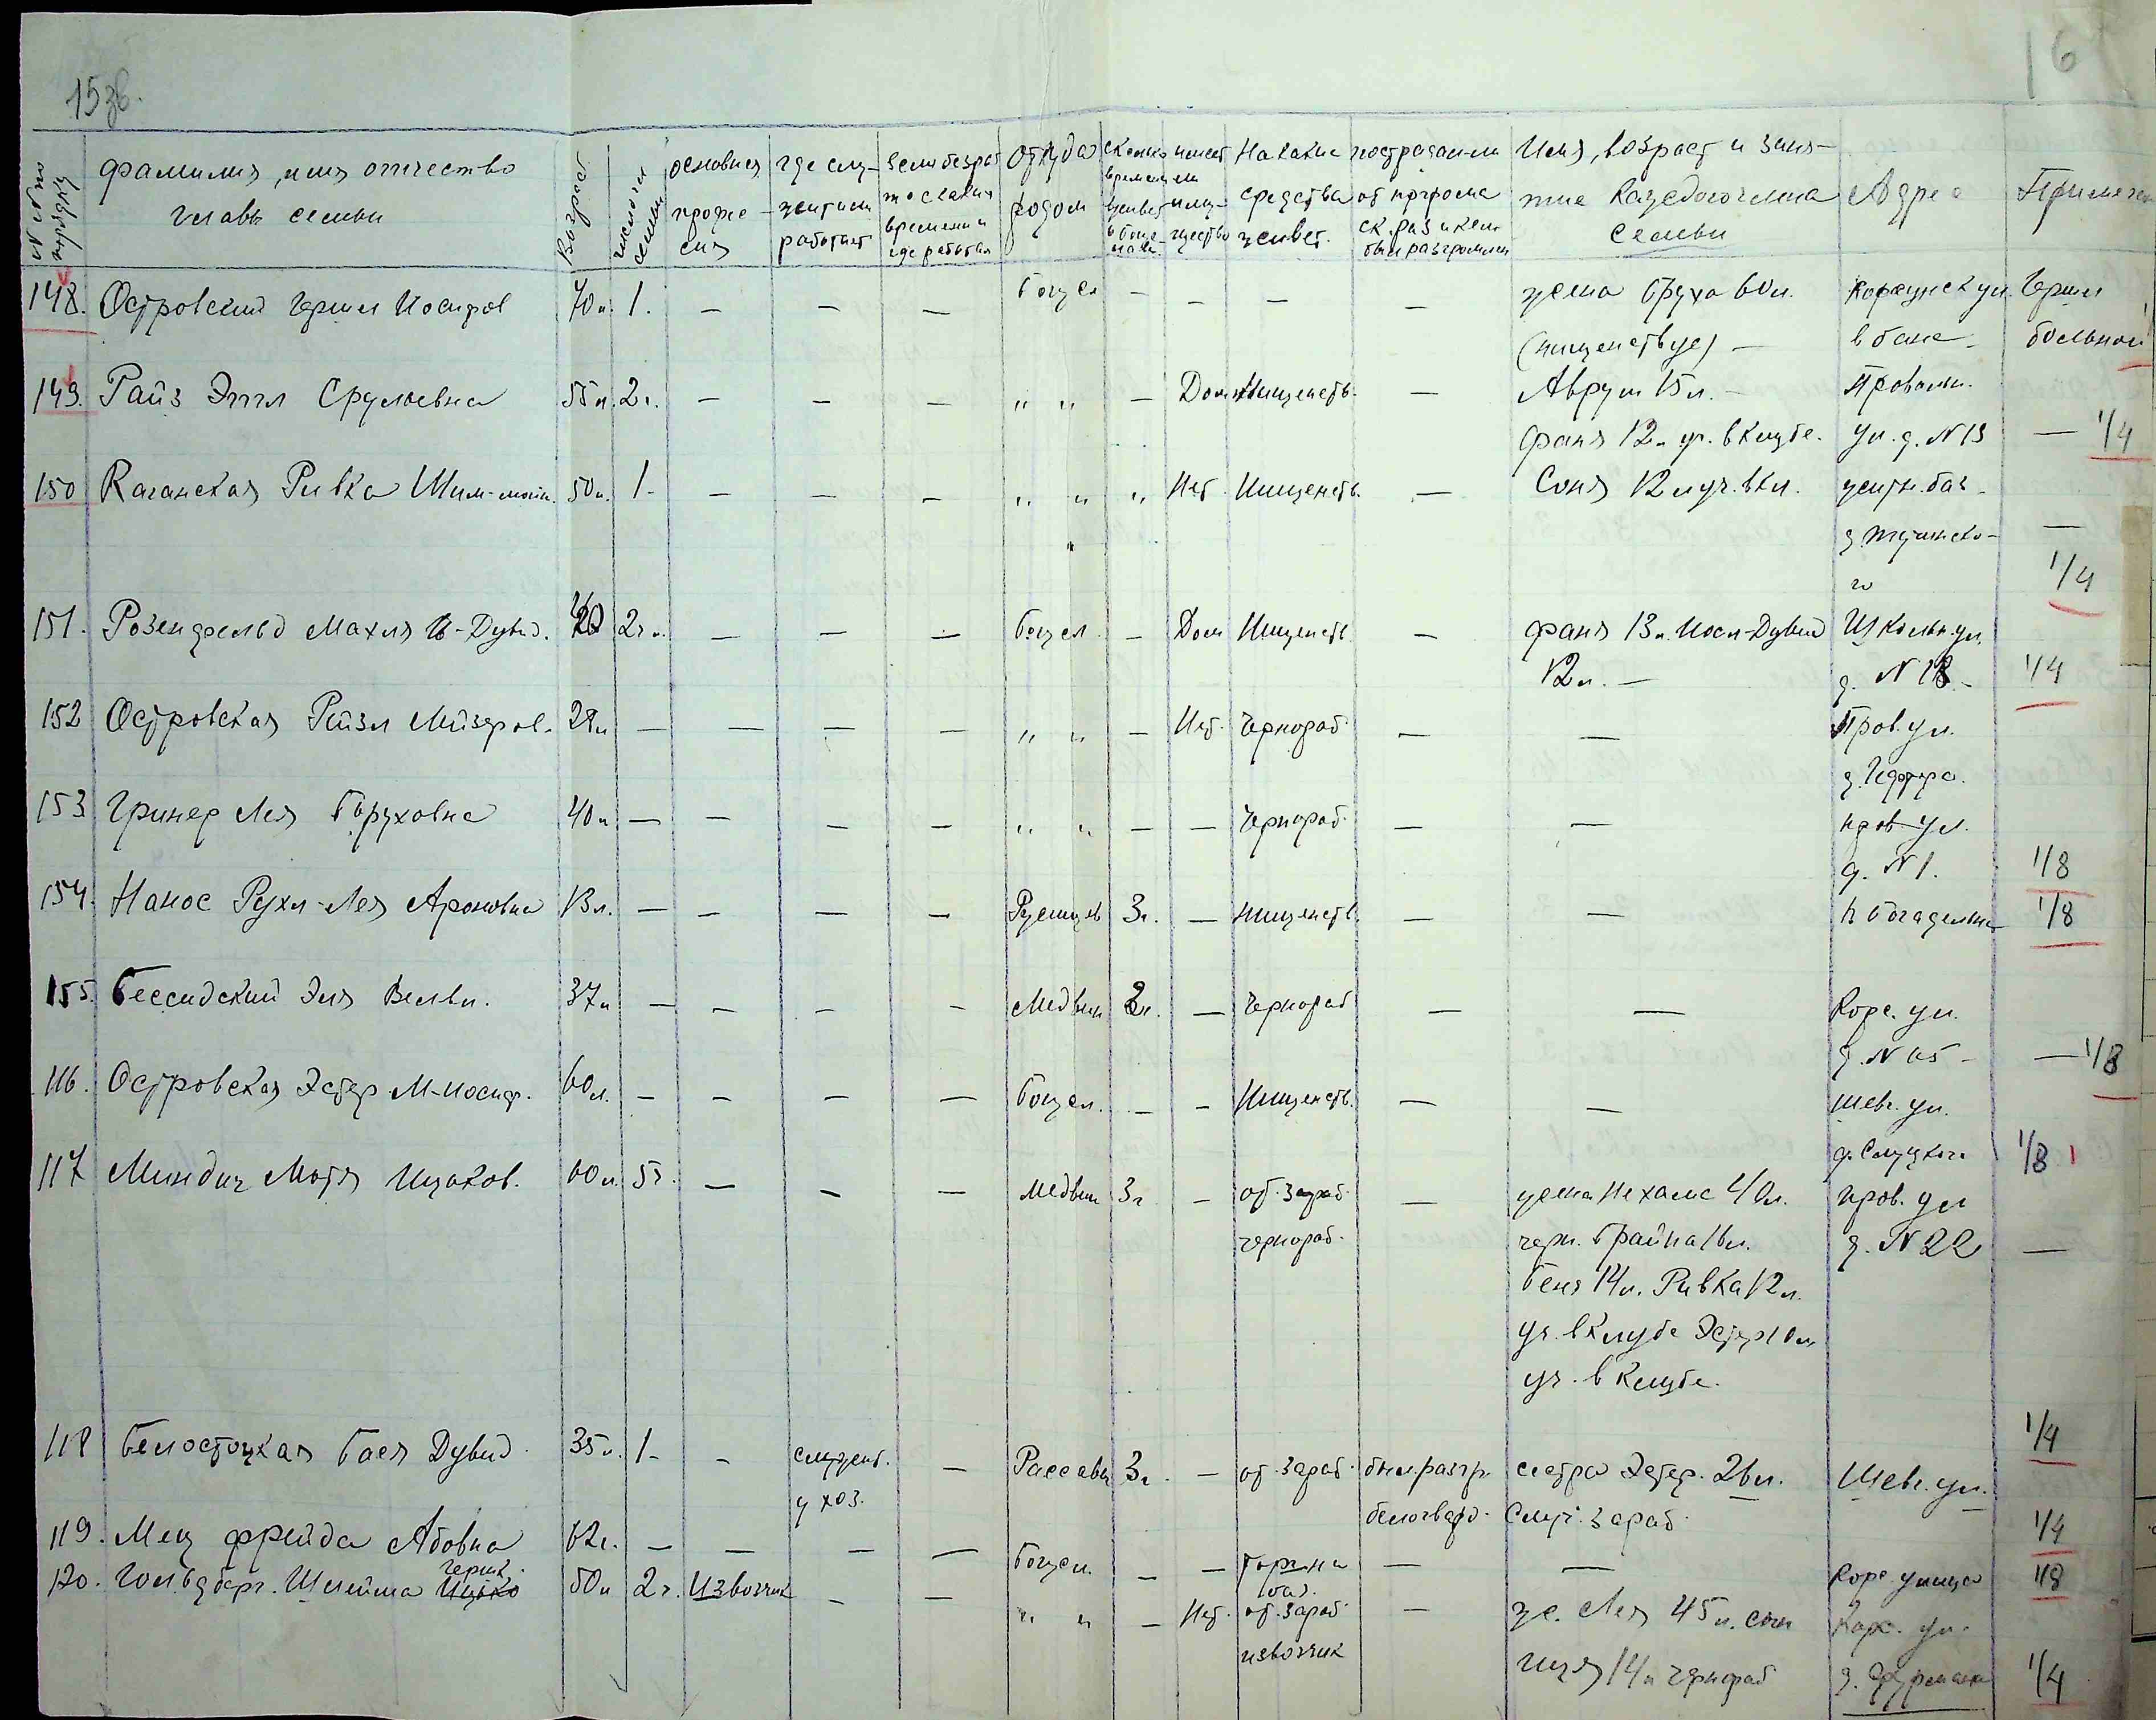 15 зв.
16
фамилия, имя отчество главы семьи
Возраст
число чл. семьи
основная професия
где служит или работает
Если безраб. то с каких времени и где работал
Откуда родом
сколько времени живет в Богуславе
имеет ли имущество
На какие средства живет.
пострадал-ли от погрома ск. раз и кем был разгромлен
Имя, возраст и занятие каждого члена семьи
Адрес
Примечан
148. Островский Гершл Иосифов 70 л. 1. — — — Богусл — — — — жена Бруха 60 л. Корсунск ул. Гершл
(нищенствует) — в бане — больной
149. Райз Этл Срулевна 55 л. 2 ч. — — — " " — Дом Нищенств. — Аврум 15 л. — Провальн.
Фаня 12 л. уч. в клубе. ул. д. N 13 — 1/4
150 Каганская Ривка Шим- 50 л. 1. — — — " " " Нет. Нищенств. — Соня 12 л уч. в кл. житн. баз.
—
го 1/4
151. Розенфельд Махля И-Дувид. 2 ч. — — — Богусл. — Дом Нищенств. — Фаня 13 л. Иосл-Дувид Школьн. ул.
12 л. — д. N 1/4
152 Островская Рейзл Лейзеров. 28 л — — — — " " — Нет. Чернораб. — — Пров. ул.
153 Гринер Лея Боруховна 40 л — — — — " " — — Чернораб. — — пров. ул.
д. N 1. 1/8
154. Нанос Рухл-Лея Ароновна 13 л. — — — — 3 г. — нищенств. — — в богадельне 1/8
155. Бессидский Эля Велвл. 37 л — — — — Медвин 2 г. — Чернораб — — Корс. ул.
д. N 65 — — 1/8
116. Островская Эстер М-Иосиф. 60 л. — — — — Богусл. — — Нищенств. — — Шевч. ул.
д. Слуцкого 1/8
117 Миндич Мотя Ицаков. 60 л. 5 ч. — — — Медвин 3 г — от. зараб. — жена Нехама 40 л. пров. ул
чернораб. черн. Брайна 16 л. д. N 22 —
Беня 14 л. Ривка 12 л.
уч. в клубе Эстер 10 л.
уч. в клубе.
1/4
118 Белостоцкая Бася Дувид. 35 л. 1. — служит. — Рассава 3 г. — от. зараб. был. разгр. сестра Эстер. 26 л. Шевч. ул.
у хоз. белогвард. Случ. зараб.
1/4
119. Мец Фрейда Абовна 62 г. — — — — Богусл. — — — — Корс. улица 1/8
баз.
120. Гольдберг. Шлейма Гершк. 50 л 2 ч. Извозчик — — " " — Нет. от. зараб. — ж. Лея 45 л. сын Корс. ул.
извозчик 14 л чернораб д. 1/4